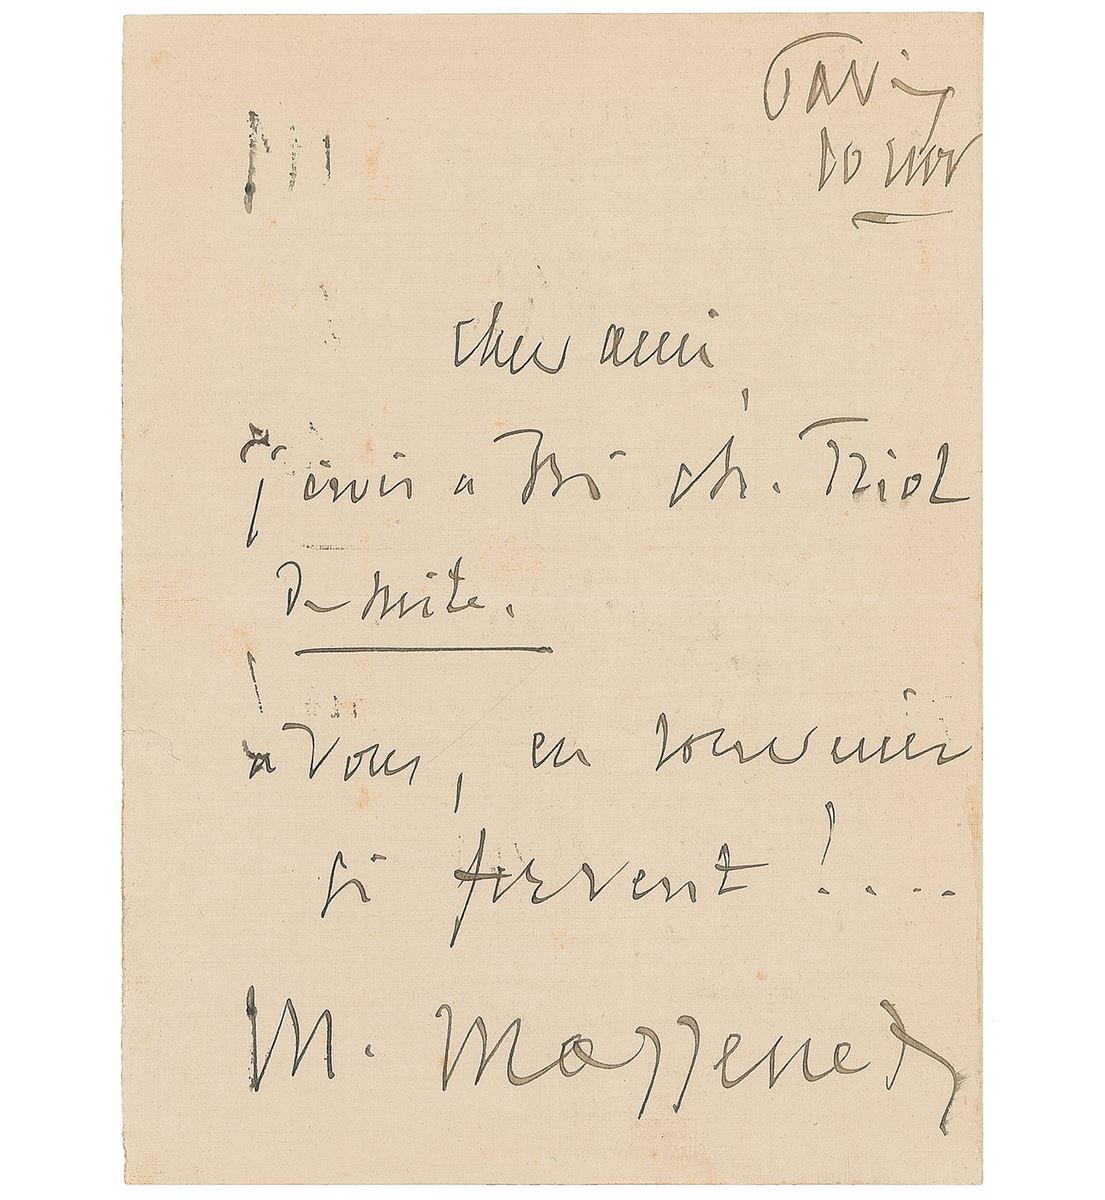 Paris
10 nov
cher ami,
j'écris à ch. Triol
De suite.
à vous, en souvenir
si fervent !....
M. Massenet